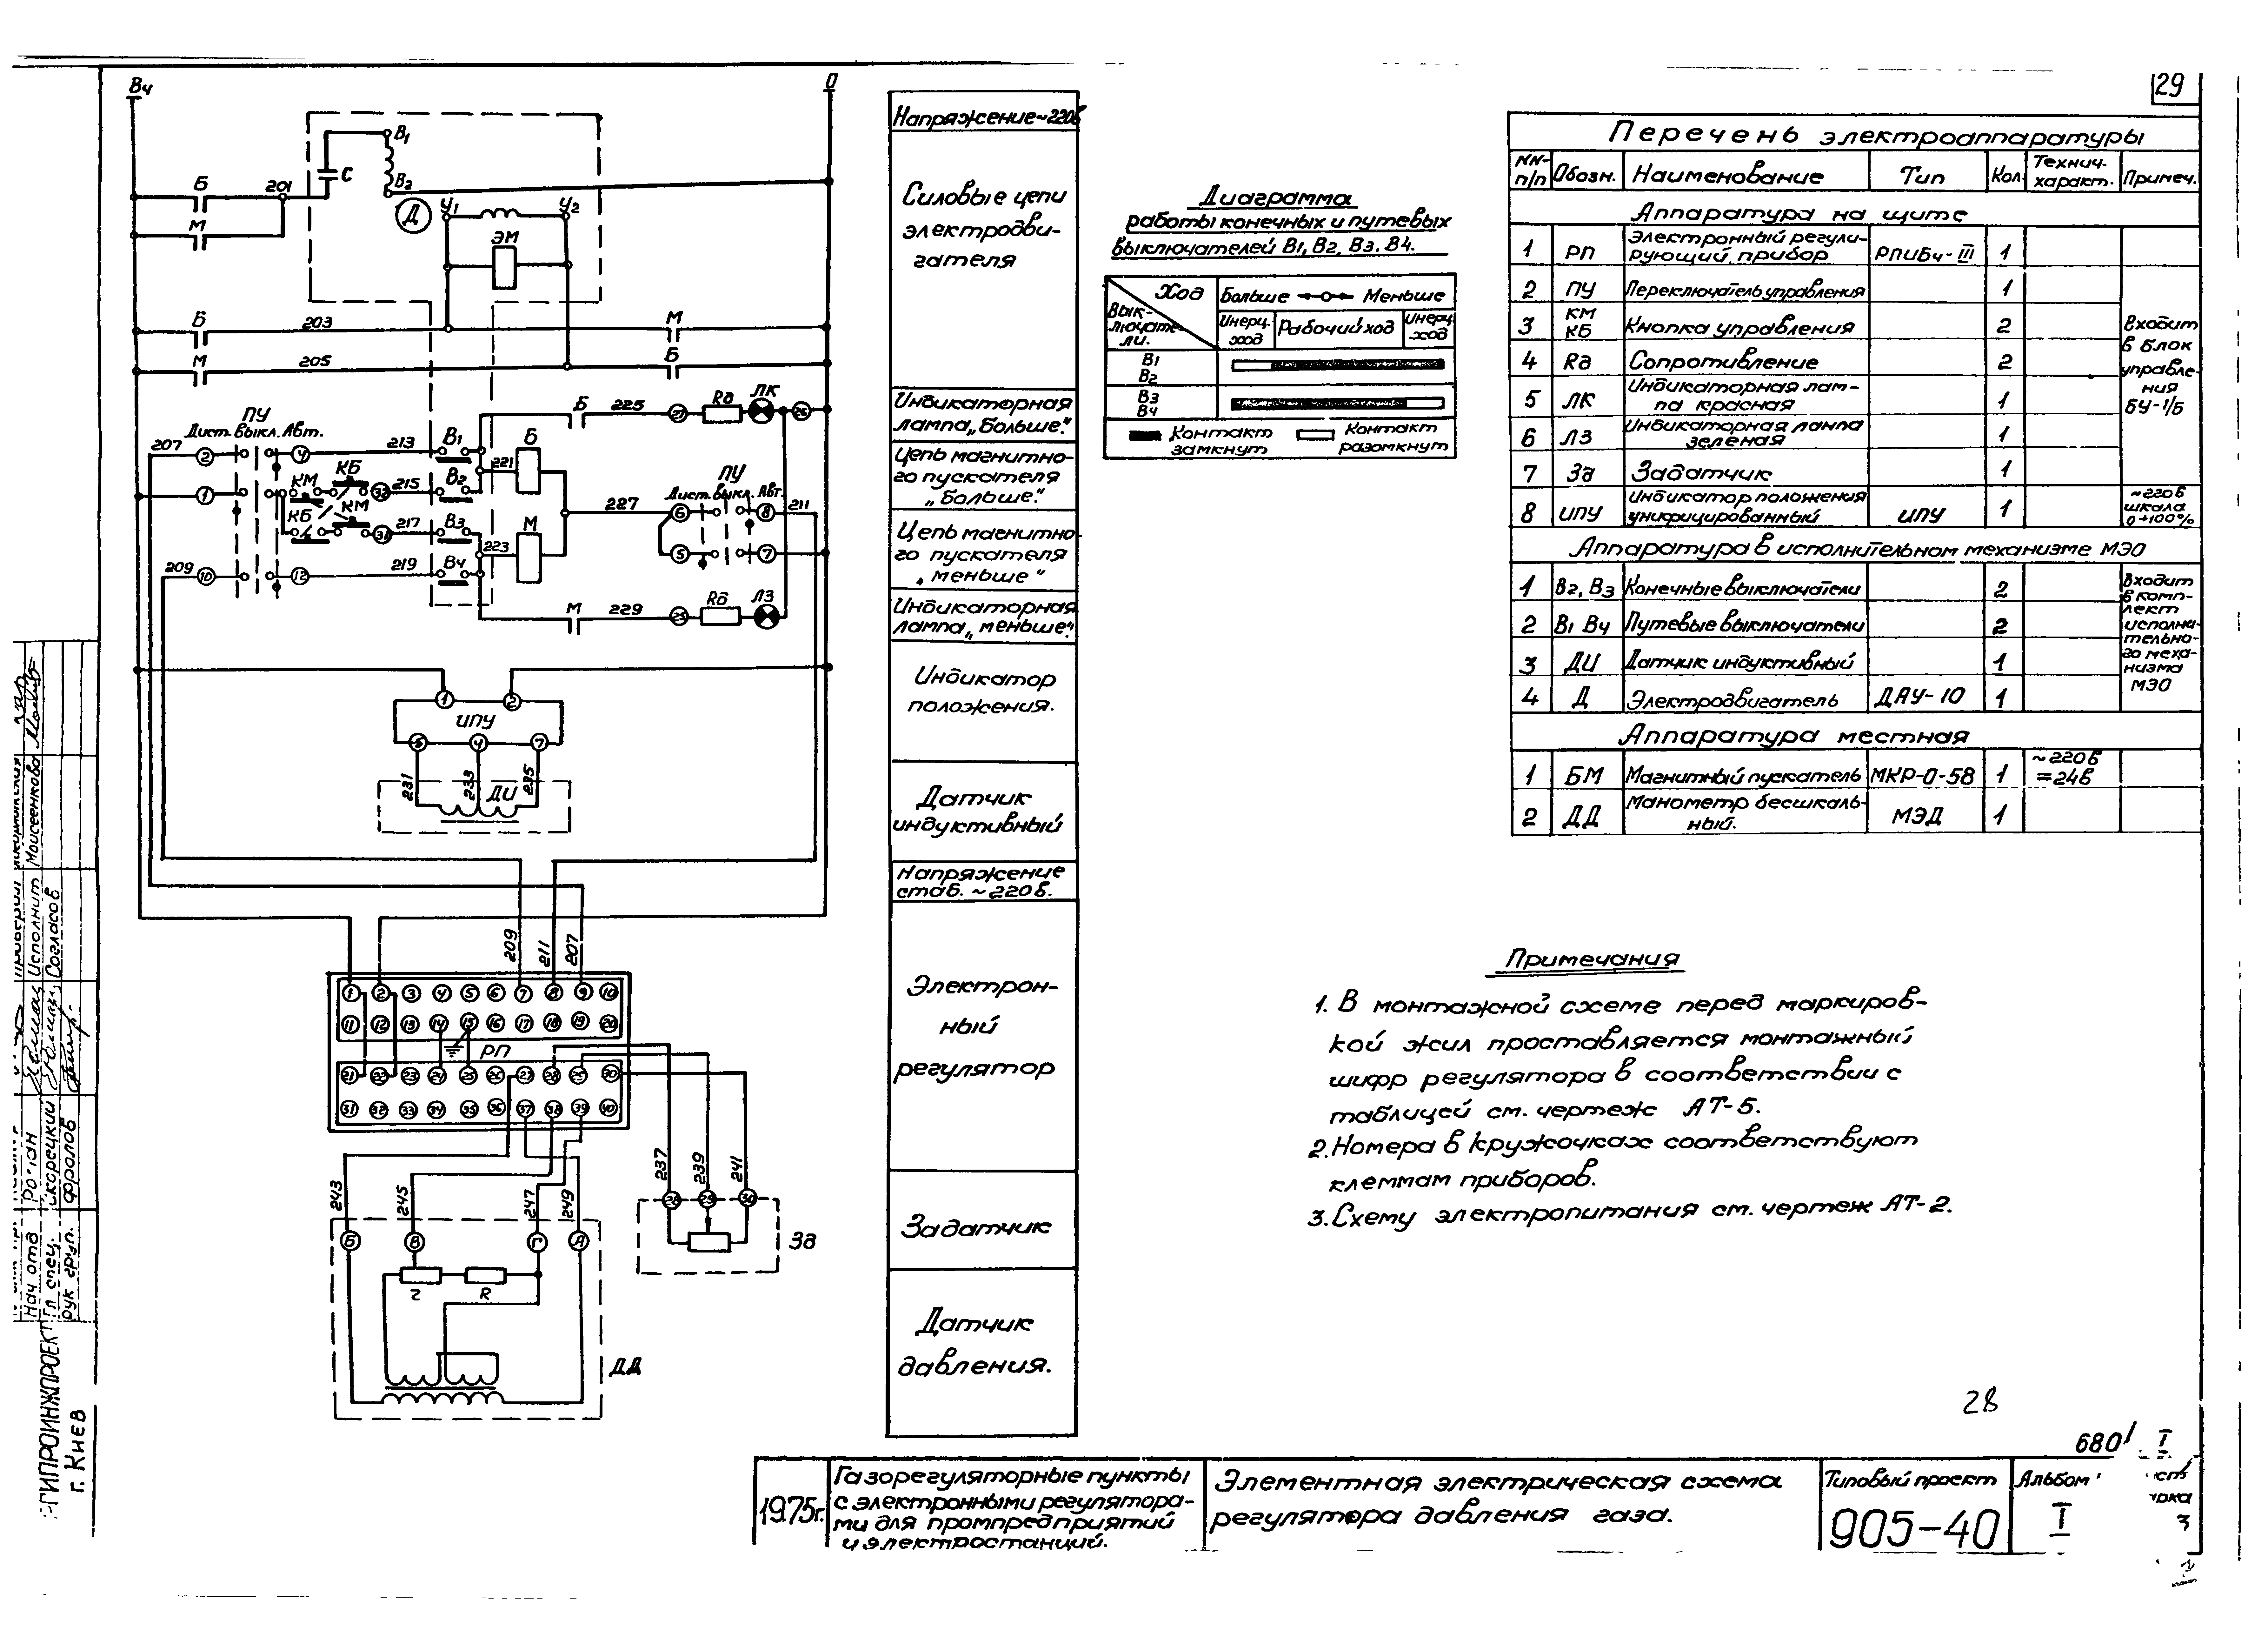 29
Вч
0
В1
С
В2
Д
Б
201
М
У1
У2
ЭМ
Б
203
М
М
205
Б
ПУ
Дист. Выкл. Авт.
207
2
4
213
В1
Б
225
27
Rд
ЛК
26
221
Б
1
КМ
КБ
32
215
В2
КБ
КМ
31
217
В3
М
223
227
ПУ
Дист. Выкл. Авт.
6
8
211
5
7
209
10
12
219
В4
М
229
25
Rб
ЛЗ
1
2
ИПУ
5
4
7
231
233
235
ДИ
209
211
207
1 2 3 4 5 6 7 8 9 10
11 12 13 14 15 16 17 18 19 20
РП
21 22 23 24 25 26 27 28 29 30
31 32 33 34 35 36 37 38 39 40
243
245
247
249
237
239
241
28
29
30
Зд
Б
В
Г
А
R
ДД
Напряжение ~220в
Силовые цепи
электродви-
гателя
Индикаторная
лампа „Больше."
Цепь магнитно-
го пускателя
„больше."
Цепь магнитно-
го пускателя
„меньше"
Индикаторная
лампа „меньше".
Индикатор
положения.
Датчик
индуктивный
Напряжение
стаб. ~220в.
Электрон-
ный
регулятор
Задатчик
Датчик
давления.
Диаграмма
работы конечных и путевых
выключателей В1, В2, В3, В4.
Ход
Вык-
лючате-
ли.
Больше Меньше
Инерц. ход
Рабочий ход
Инерц. ход
В1
В2
В3
В4
Контакт замкнут
Контакт разомкнут
Перечень электроаппаратуры
NN- п/п Обозн. Наименование Тип Кол. Технич. характ. Примеч.
Аппаратура на щите
1 РП Электронный регули- рующий прибор РПИБ4-III 1
2 ПУ Переключатель управления 1
3 КМ КБ Кнопка управления 2
4 Rд Сопротивление 2
5 ЛК Индикаторная лам- па красная 1
6 ЛЗ Индикаторная лампа зеленая 1
7 Зд Задатчик 1
Входит в блок управле- ния БУ-1/Б
8 ИПУ Индикатор положения унифицированный ИПУ 1 ~220в шкала 0÷100%
Аппаратура в исполнительном механизме МЭО
1 В2, В3 Конечные выключатели 2
2 В1 В4 Путевые выключатели 2
3 ДИ Датчик индуктивный 1
4 Д Электродвигатель ДАУ-10 1
Входит в комп- лект исполна- тельно- го меха- низма МЭО
Аппаратура местная
1 БМ Магнитный пускатель МКР-0-58 1 ~220в =24в
2 ДД Манометр бесшкаль- ный. МЭД 1
Примечания
1. В монтажной схеме перед маркиров-
кой жил проставляется монтажный
шифр регулятора в соответствии с
таблицей см. чертеж АТ-5.
2. Номера в кружочках соответствуют
клеммам приборов.
3. Схему электропитания см. чертеж АТ-2.
28
6801 I
1975г.
Газорегуляторные пункты
с электронными регулятора-
ми для промпредприятий
и электростанций.
Элементная электрическая схема
регулятора давления газа.
Типовый проект
905-40
Альбом
I
3
Исполнит Моисеенкова
Согласов
Нач отд
Гл. спец. Скорецкий
Рук груп. Фролов
УКРГИПРОИНЖПРОЕКТ
г. Киев